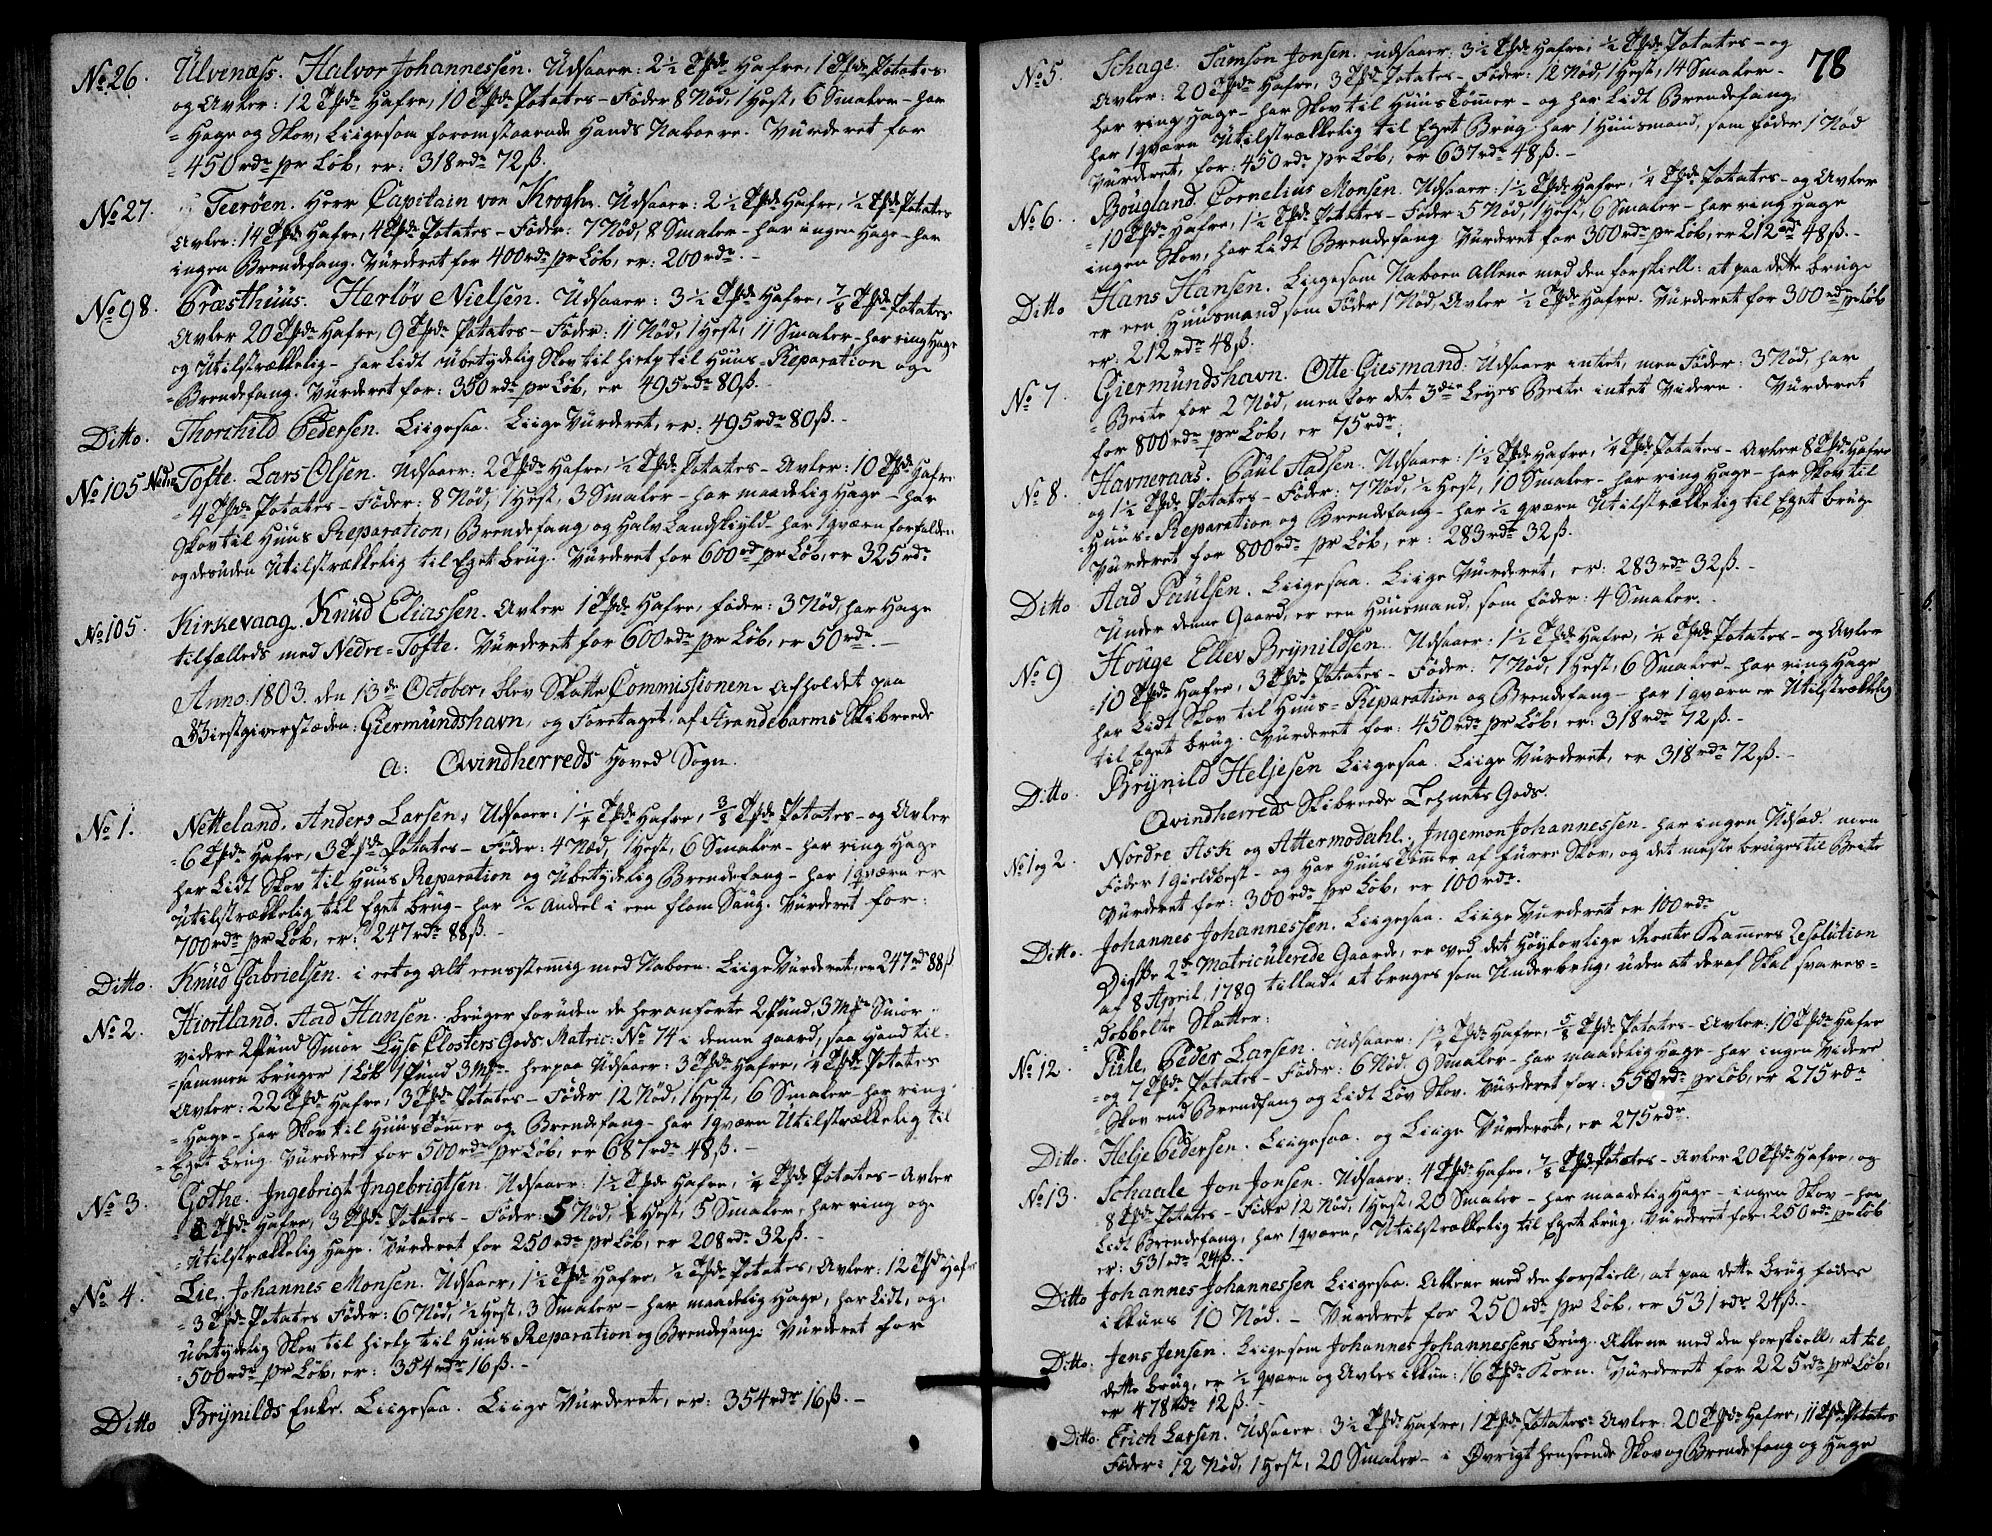 No 26. Ulvinæss. Halvor Johannessen. Udsaaer: 2½ Tdr Hafre, 1 Tde Potates
og Avler: 12 Tdr Hafre, 10 Tdr Potates – Föder 8 Nöd, 1 Hest, 6 Smaler – har
Hage og Skov, Liigesom foromstaaende hands Naboere. Vürderet for
450 rdr pr Löb, er: 318 rdr 72 ß.
No 27. Teeröen. Herr Capitain von Krogh. Udsaaer: 2½ Tdr Hafre, ½ Tde Potates
Avler: 14 Tdr Hafre, 4 Tdr Potates – Föder: 7 Nöd, 8 Smaler – har ingen Hage – har
ingen Brendefang. Vürderet for 400 rdr pr Löb, er: 200 rdr. –
No 98. Præsthüüs. Herlöv Nielsen. Udsaaer: 3½ Tdr Hafre, ⅞ Tde Potates
Avler 20 Tdr Hafre, 9 Tdr Potates – Föder: 11 Nöd, 1 Hest, 11 Smaler – har ring Hage
og Utilstrækkelig – har Lidt ubetydelig Skov til hielp til Huus Reparation og
Brendefang. Vürderet for: 350 rdr pr Löb, er 495 rdr 80 ß. –
Ditto. Thorchild Pedersen. Liigesaa. Liige Vürderet, er: 495 rdr 80 ß. –
No 105 Nedre Tofte. Lars Olsen. Udsaaer: 2 Tdr Hafre, ½ Tde Potates – Avler: 10 Tdr Hafre
4 Tdr Potates – Föder: 8 Nöd, 1 Hest, 3 Smaler – har maadelig Hage – har
Skov til Huus Reparation, Brendefang, og Halv Landskyld – har 1 qværn forfalden
og desuden Utilstrækkelig til Eget brüg. Vürderet for 600 rdr pr Löb, er 325 rdr
No 105. Kirkevaag. Knüd Eliassen. Avler 1 Tde Hafre, föder: 3 Nöd, har Hage
tilfælleds med Nedre-Tofte. Vürderet for 600 rdr pr Löb, er 50 rdr. –
Anno: 1803. den 13de October, blev Skatte Commissionen Afholdet paa
Giestgiverstæden: Giermündshavn, og Foretaget af Strandebarms Skibreede
a: Qvindherreds Hoved Sogn.
No 1. Netteland. Anders Larsen, Udsaaer: 1¼ Tde Hafre, ⅜ Tde Potates – og Avler
6 Tdr Hafre, 3 Tdr Potates – Föder: 4 Nöd, 1 Hest, 6 Smaler – har ring Hage
har Lidt Skov til Huus Reparation og Übetydelig Brendefang – har 1 qværn er
Utilstrækkelig til Eget brüg – har ½ Andeel i een flom Saug. Vürderet for:
700 rdr pr Löb, er: 247 rdr 88 ß. –
Ditto. Knüd Gabrielsen. i et og alt eensstemmig med Naboen. Liige Vürderet, er 247 rd 88 ß
No 2. Hiortland. Aad Hansen. brüger foruden de heranförte 2 Pund, 3 Mrk Smör
videre 2 Pund Smör Lyse Closters Gods Matric: No 74 i denne gaard, saa Hand til-
sammen brüger 1 Löb 1 Pund 3 Mrk. herpaa Udsaaer: 3 Tdr Hafre, ½ Tde Potates
Avler: 22 Tdr Hafre, 3 Tdr Potates – Föder 12 Nöd, 1 Hest, 6 Smaler – har ring
Hage – har Skov til Huustömer og Brendefang – har 1 qværn Utilstrækkelig til
Eget brüg. Vürderet for 500 rdr pr Löb, er 687 rdr 48 ß. –
No 3. Gothe. Ingebrigt Ingebrigtsen. Udsaaer: 1½ Tde Hafre, ¼ Tde Potates – Avler
8 Tdr Hafre, 3 Tdr Potates – Föder: 5 Nöd, 1 Hest, 5 Smaler, har ring og
Utilstrækkelig Hage. Vürderet for 250 rdr pr Löb, er 208 rdr 32 ß. –
No 4. Lie. Johannes Monsen. Udsaaer, 1½ Tde Hafre, ½ Tde Potates, Avler: 12 Tdr Hafre
3 Tdr Potates Föder: 6 Nöd, ½ Hest, 3 Smaler – har maadelig Hage, har Lidt, og
Übetydelig Skov til hielp til Huus Reparation og Brendefang. Vürderet for
500 rdr pr Löb, er: 354 rdr 16 ß. –
Ditto Brynilds Enke. Liigesaa. Liige Vürderet, er: 354 rdr 16 ß. –
78
No 5. Schage. Samson Jonsen. Udsaaer: 3½ Tdr Hafre, ½ Tde Potates – og
Avler: 20 Tdr Hafre, 3 Tdr Potates – Föder: 12 Nöd, 1 Hest, 14 Smaler –
har ring Hage – har Skov til Huustömmer – og har Lidt Brendefang,
har 1 qværn Utilstrækkelig til Eget Brüg. har 1 Huusmand, som föder 1 Nöd
Vürderet, for: 450 rdr pr Löb, er 637 rdr 48 ß. –
No 6. Bougland. Cornelius Monsen. Udsaaer: 1½ Tde Hafre, ¼ Tde Potates – og Avler
10 Tdr Hafre, 1½ Tde Potates – Föder 5 Nöd, 1 Hest, 6 Smaler – har ring Hage
ingen Skov, har Lidt Brendefang Vürderet for 300 rdr pr Löb, er 212 rdr 48 ß. –
Ditto Hans Hansen. Liigesom Naboen Allene med den forskiell: at paa dette brüg
er een Huusmand som Föder 1 Nöd, Avler ½ Tde Hafre. Vürderet for 300 rdr pr Löb
er: 212 rdr 48 ß.
No 7. Giermündshavn. Otte Giesmand. Udsaaer intet, men Föder: 3 Nöd, har
Beite for 2 Nöd, men for det 3die Leyes Beite intet videre. Vürderet
for 800 rdr pr Löb, er 75 rdr.
No 8. Havneraas. Paul Aadsen. Udsaaer: 1½ Tde Hafre, ¼ Tde Potates – Avler 8 Tdr Hafre
og 1½ Tde Potates – Föder: 7 Nöd, ½ Hest, 10 Smaler – har ring Hage – har Skov til
Huus-Reparation og Brendefang – har ½ qværn Utilstrækkelig til Eget brüg
Vürderet for 800 rdr pr Löb, er: 283 rdr 32 ß.
Ditto Aad Paulsen. Liigesaa. Liige Vürderet, er: 283 rdr 32 ß. –
Under denne Gaard, er een Huusmand, som föder: 4 Smaler.
No 9 Houge Ellev Brynildsen. Udsaaer: 1½ Tde Hafre, ¼ Tde Potates – og Avler
10 Tdr Hafre, 3 Tdr Potates – Föder: 7 Nöd, 1 Hest, 6 Smaler – har ring Hage
har Lidt Skov til Huus-Reparation og Brendefang – har 1 qværn er Utilstrækkelig
til Eget brüg. Vürderet for: 450 rdr pr Löb, er: 318 rdr 72 ß. –
Ditto. Brynild Heljesen Liigesaa. Liige Vürderet, er 318 rdr 72 ß. –
Qvindherreds Skibreede Lehnets Gods.
No 1 og 2. Nordre Ask og Attermodahl. Ingemon Johannessen – har ingen Udsæd men
Föder 1 Gieldbest – og Har Huus Tömmer af fürre Skov, og det meste brüges til Beite
Vürderet for: 300 rdr pr Löb, er 100 rdr.
Ditto. Johannes Johannessen. Liigesaa. Liige Vürderet er 100 rdr
Disse 2de Matriculerede Gaarde, er ved det höylovlige Rente Kammers Resolution
af 8 April, 1789 tilladt at bruges som Underbrug, uden at deraf Skal svares
dobbelte Skatter.
No 12. Tule, Peder Larsen. Udsaaer: 1¾ Tde Hafre, ⅝ Tde Potates – Avler: 10 Tdr Hafre
og 7 Tdr Potates – Föder: 6 Nöd. 9 Smaler – har maadelig Hage – har ingen videre
Skov end Brendfang og Lidt Löv Skov. Vürderet for: 550 rdr pr Löb, er 275 rdr
Ditto. Helje Pedersen. Liigesaa. og Liige Vürderet, er 275 rdr.
No 13. Schaale Jon Jonsen. Udsaaer: 4 Tdr Hafre, ⅞ Tde Potates – Avler 20 Tdr Hafre, og
8 Tdr Potates – Föder 12 Nöd, 1 Hest, 20 Smaler – har maadelig Hage – ingen Skov – har
Lidt Brendefang, har 1 qværn, Utilstrækkelig til Eget brüg. Vürderet for: 250 rdr pr Löb
er: 531 rdr 24 ß. –
Ditto Johannes Johannessen Liigesaa. Allene med den forskiell, at paa dette brüg födes
ikkuns 10 Nöd. – Vürderet for 250 rdr pr Löb, er 531 rdr 24 ß. –
Ditto. Jens Jensen. Liigesom Johannes Johannessens brüg. Allene med den forskiell, at til
dette brüg, er ½ qværn og Avles ikkun: 16 Tdr Korn. Vürderet for 225 rdr pr Löb,
er 478 rdr 12 ß. –
Ditto. Erich Larsen. Udsaaer: 3½ Tdr Hafre, 1 Tde Potates: Avler: 20 Tdr Hafre, 11 Tdr Potates
Föder: 12 Nöd, 1 Hest, 20 Smaler – i Øvrigt henseende Skov og Brendefang og Hage